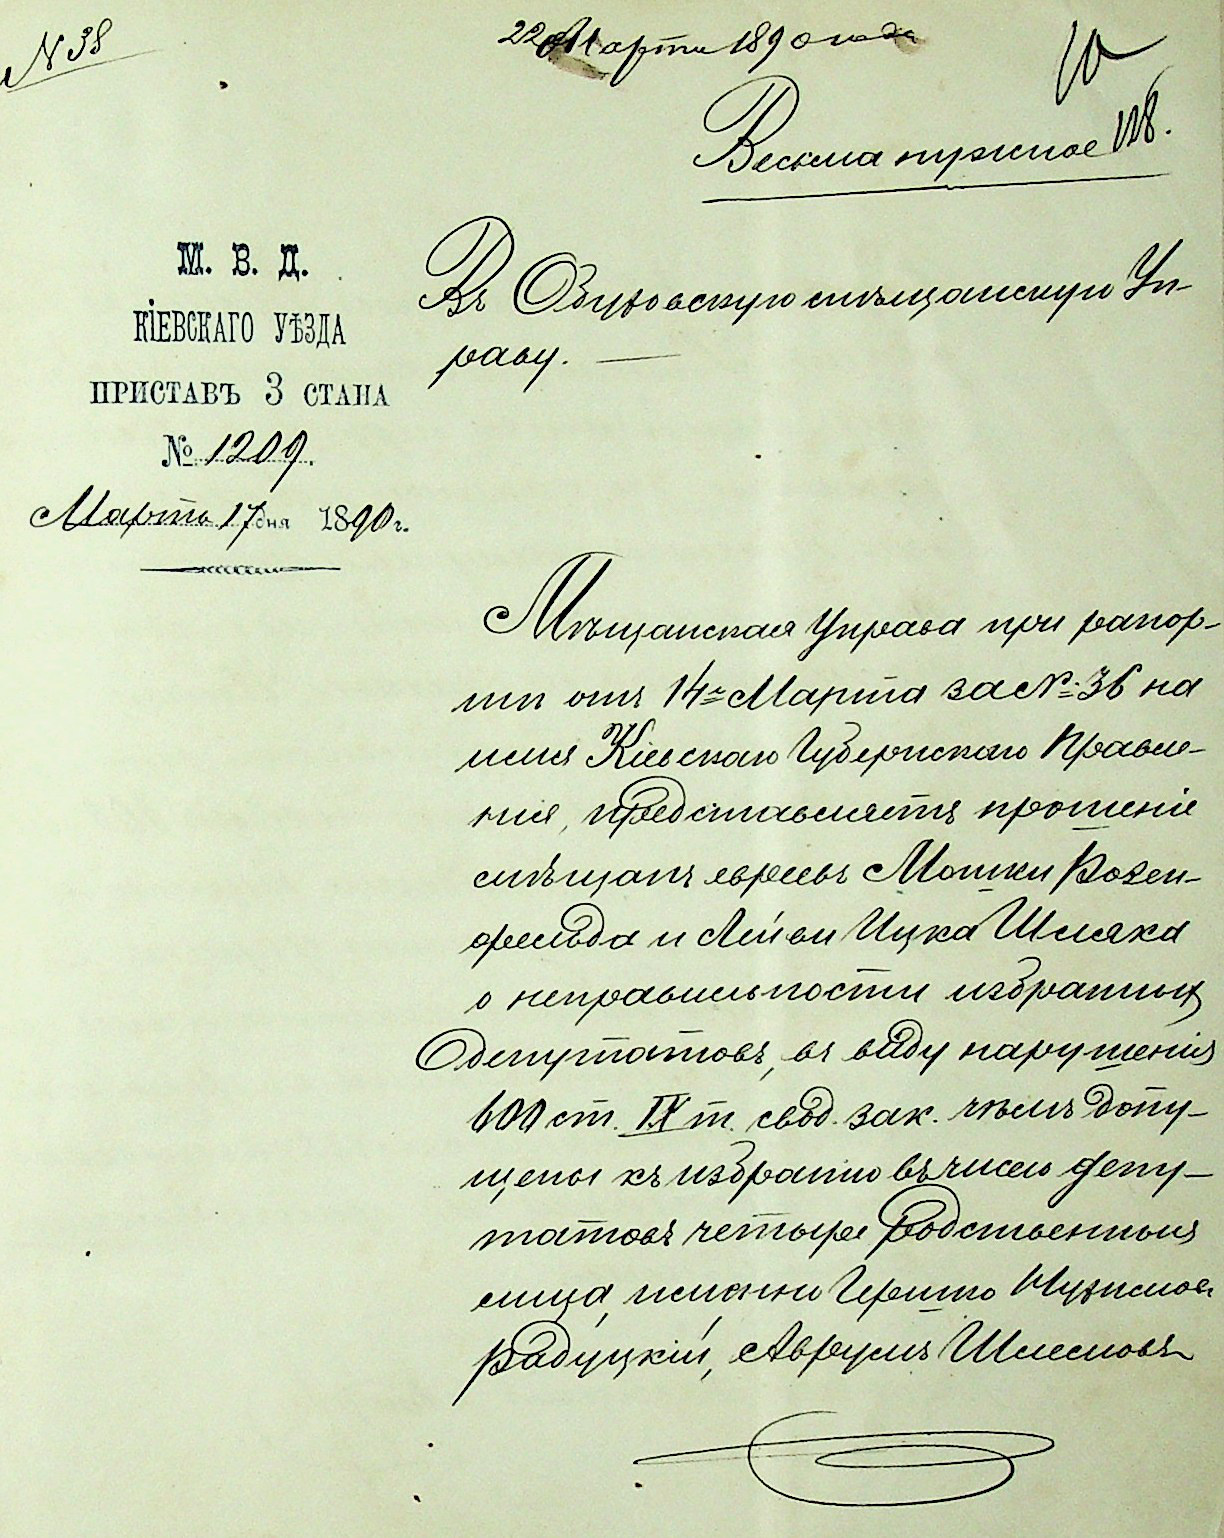 N 38
22 Марта 1890 года
10
Весьма нужное
128.
М. В. Д.
КІЕВСКАГО УѢЗДА
ПРИСТАВЪ 3 СТАНА
№ 1209.
Марта 17 дня 1890 г.
Въ Обуховскую мѣщанскую Уп-
раву. —
Мѣщанская Управа при рапор-
тѣ отъ 14го Марта за № 36 на
имя Кіевскаго Губернскаго Правле-
нія, представляетъ прошеніе
мѣщанъ евреевъ Мошки Розен-
фельда и Лейви Ицка Шляка
о неправильности избранных
депутатовъ, въ виду нарушенія
600 ст. IX т. свод. зак. чѣмъ допу-
щены къ избранію въ число депу-
татовъ четыре родственныя
лица, именно Гершко
Радуцкій, Аврумъ Шлемовъ